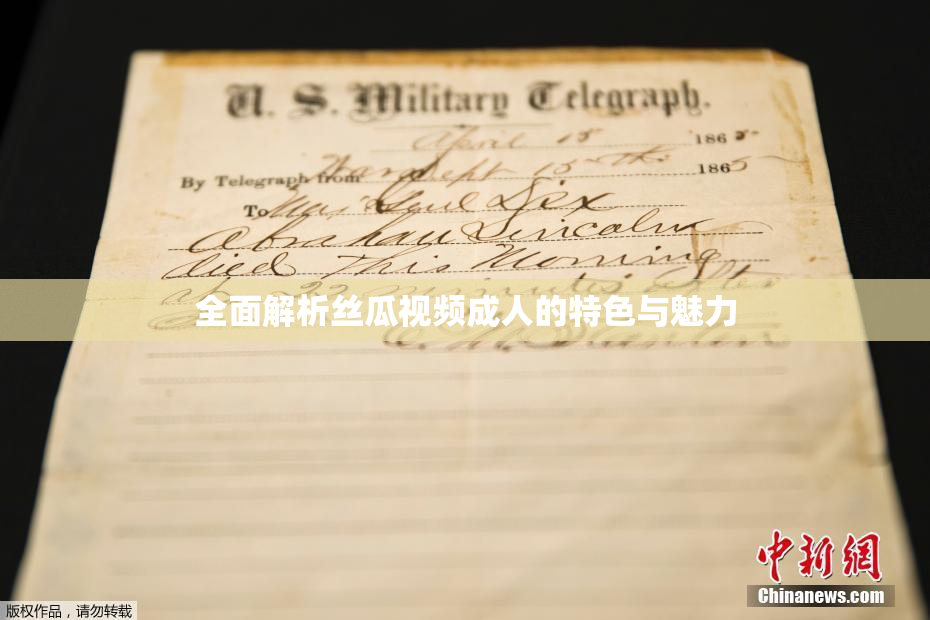 U. S. Military Telegraph.
April 15 1865
By Telegraph from War Dept 15th 1865
To Maj Genl Dix
Abraham Lincoln
died This Morning
at 22 minutes after
全面解析丝瓜视频成人的特色与魅力
E. M. Stanton
中新網
Chinanews.com
版权作品，请勿转载